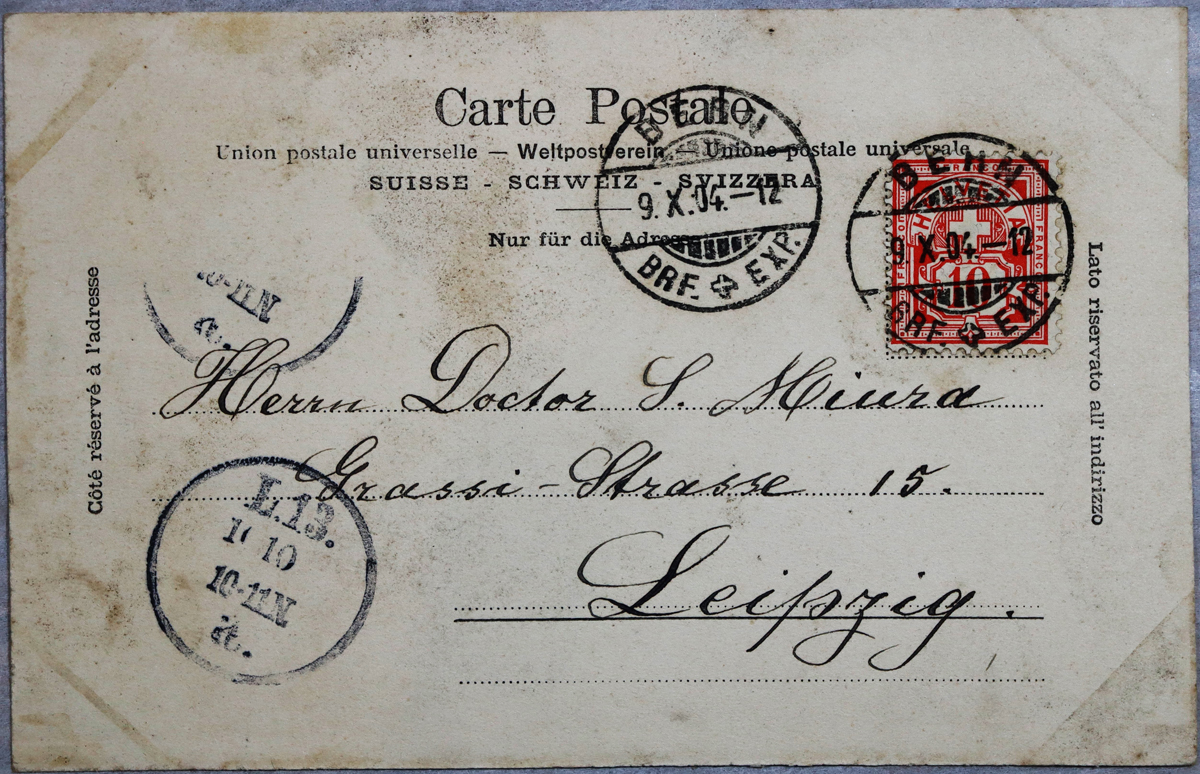 Carte Postale
Union postale universelle — Weltpostverein — Unione postale universale
SUISSE - SCHWEIZ - SVIZZERA
Nur für die Adresse
BERN
9.X.04.–12
BRF. EXP.
BERN
9.X.04.–12
BRF. EXP.
HELVETIA
FRANCO
10
Côté réservé à l'adresse
Lato riservato all' indirizzo
10-11N
a.
Herrn Doctor S. Miura
Grassi-Strasse 15.
Leipzig.
L.13.
10
10-11N
a.